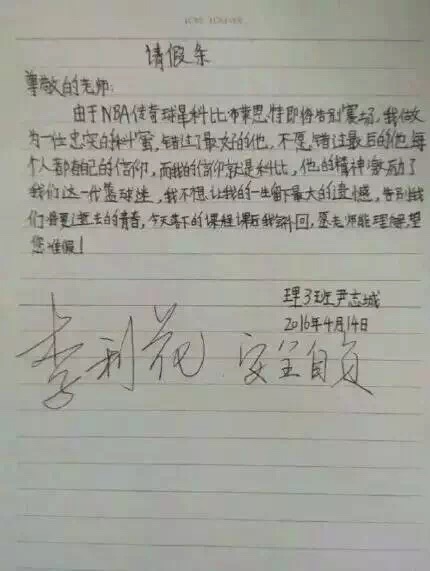 请假条
尊敬的老师:
由于NBA传奇球星科比·布莱恩特即将告别赛场,我做
为一位忠实的科蜜,错过了最好的他,不愿错过最后的他,每
个人都有自己的信仰,而我的信仰就是科比,他的精神激励了
我们这一代篮球迷,我不想让我的一生留下最大的遗憾,告别我
们 逝去的青春,今天落下的课程课后我会补回,愿老师能理解,望
您准假!
理3班尹志城
2016年4月14日
李利花 安全自负